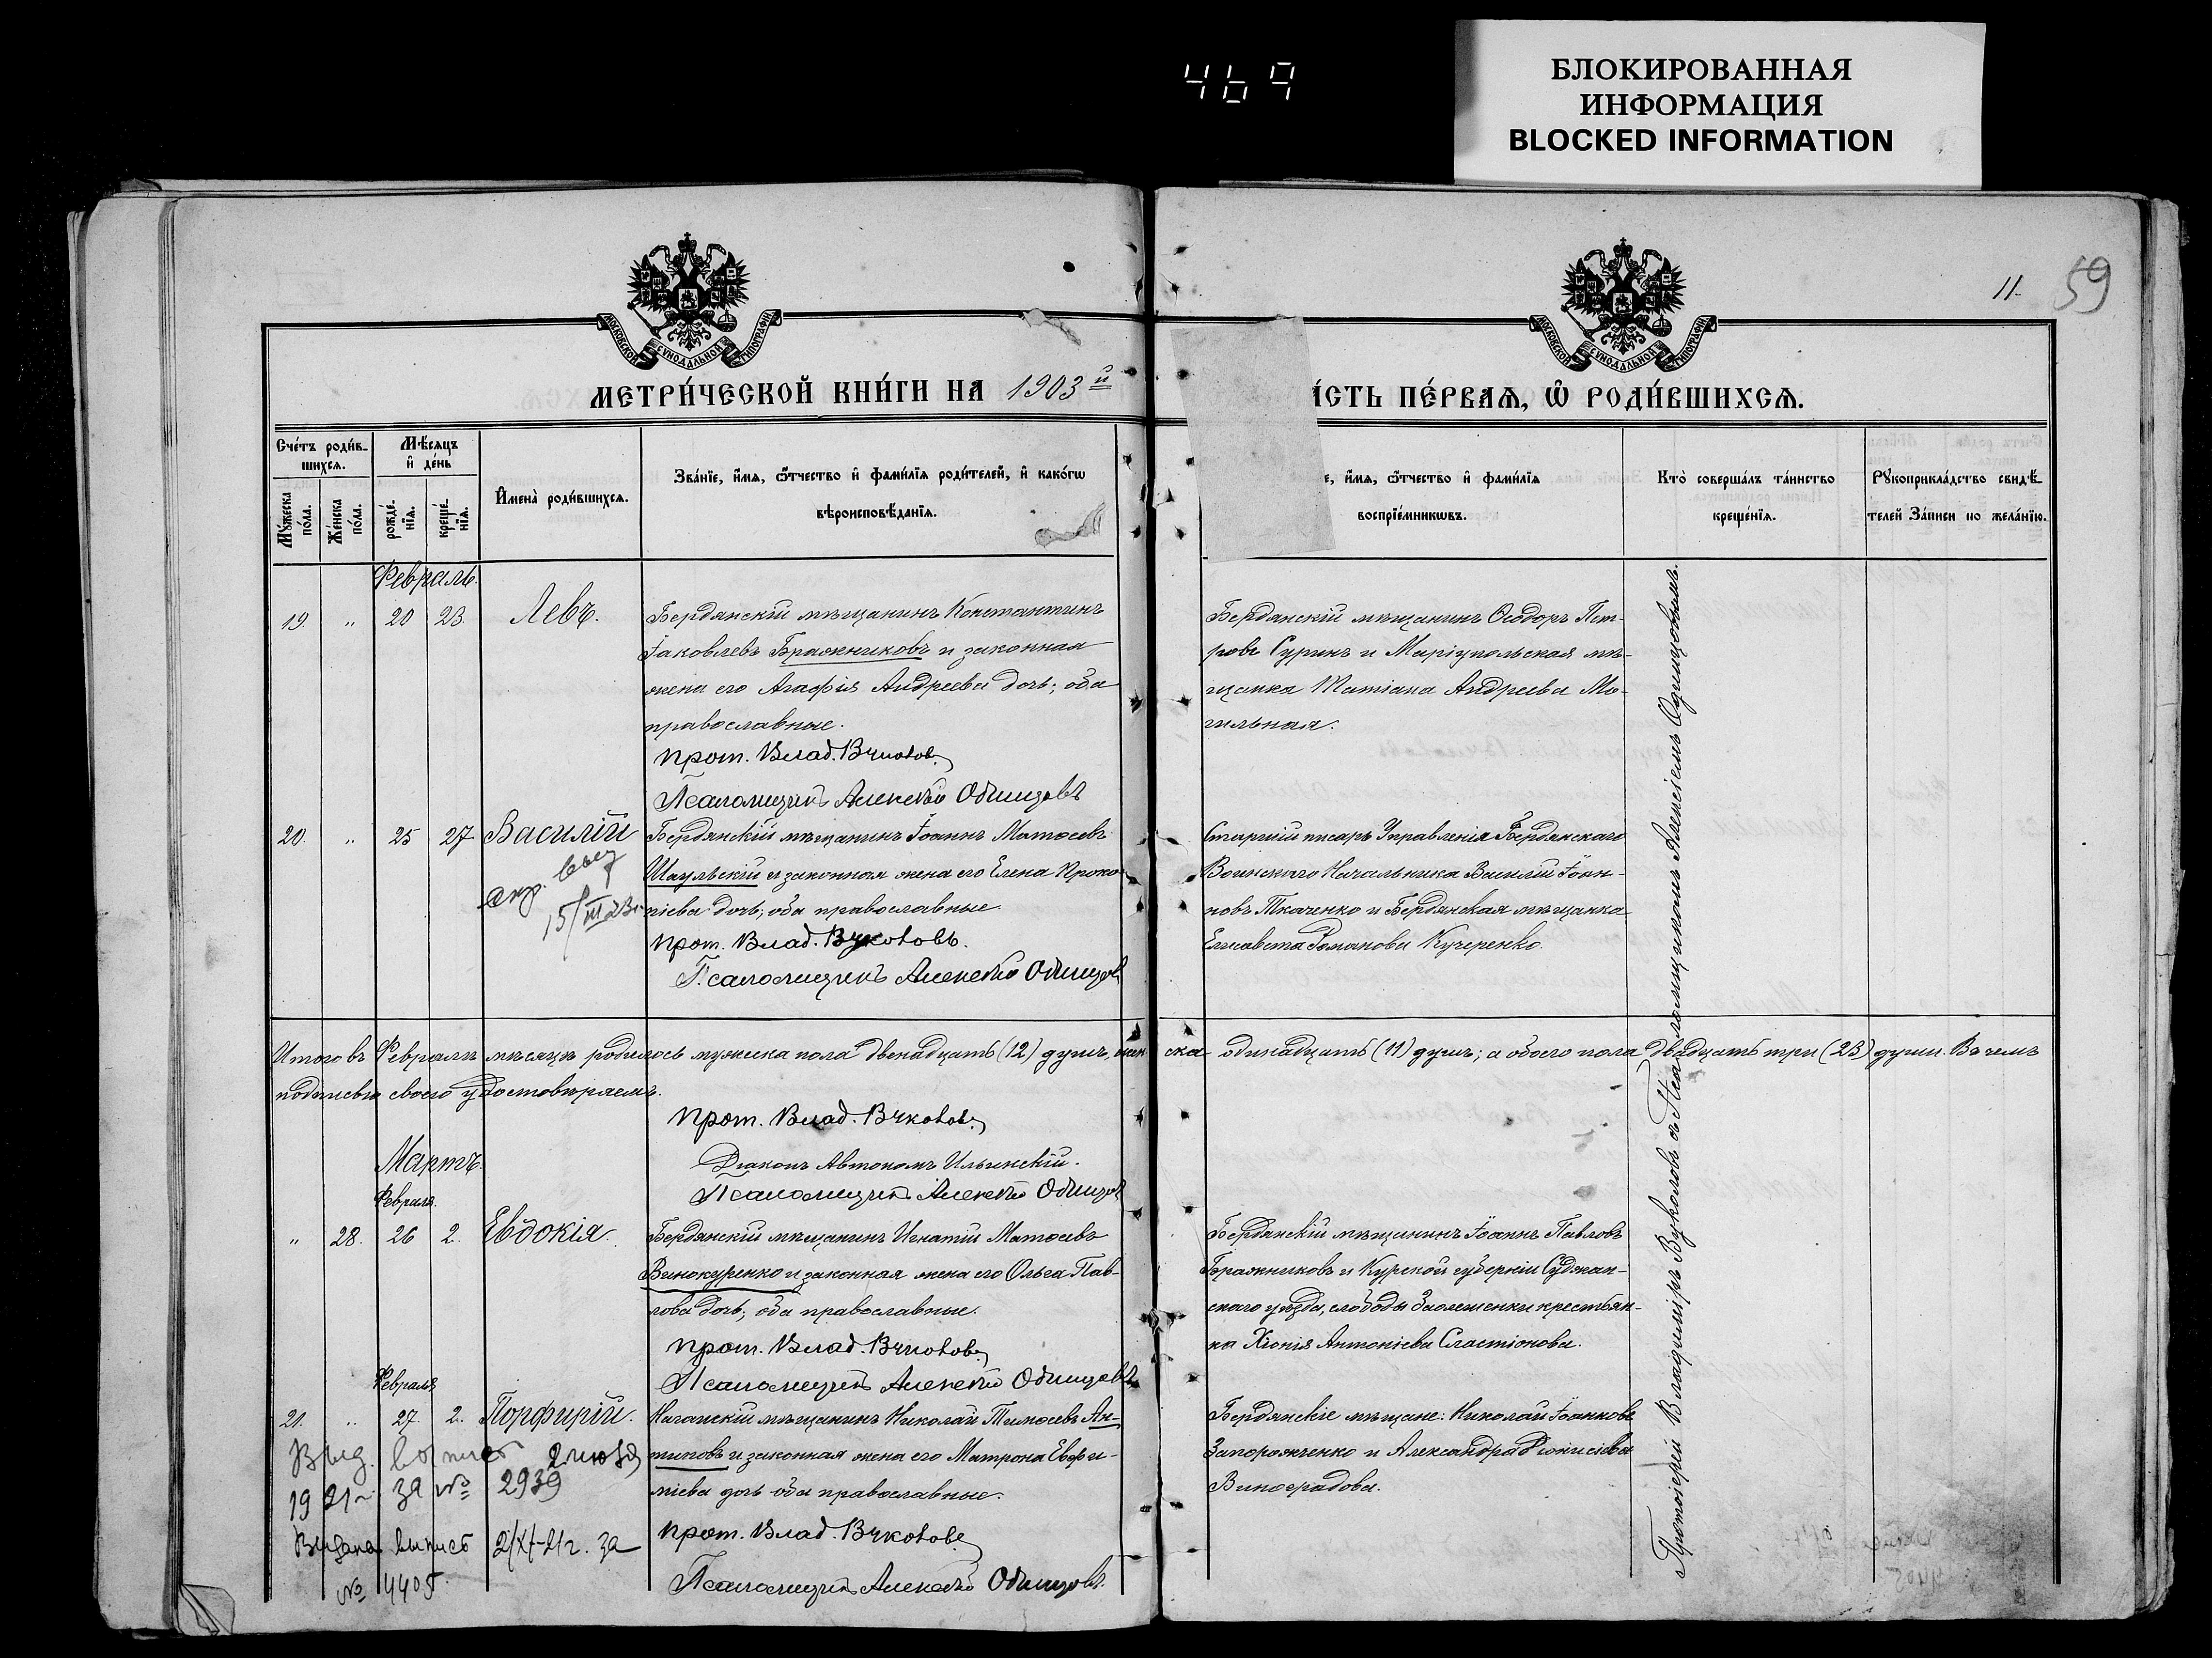 469
БЛОКИРОВАННАЯ
ИНФОРМАЦИЯ
BLOCKED INFORMATION
11
59
МОСКОВСКОЙ СѴНОДАЛЬНОЙ ТИПОГРАФІИ
МОСКОВСКОЙ СѴНОДАЛЬНОЙ ТИПОГРАФІИ
МЕТРИ́ЧЕСКОЙ КНИ́ГИ НА 1903й
ІСТЬ ПЕ́РВАѦ, Ѡ҆ РОДИ́ВШИХСѦ.
Сче́тъ роди́в-
шихсѧ.
Мꙋ́жеска
по́ла.
Же́нска
по́ла.
Мѣ́сѧцъ
и҆ де́нь
рожде́-
нїѧ.
креще́-
нїѧ.
И҆мена̀ роди́вшихсѧ.
Зва́нїе, и҆́мѧ, ѻ҆́тчество и҆ фами́лїѧ роди́телей, и҆ како́гѡ
вѣроисповѣ́данїѧ.
е, и҆́мѧ, ѻ҆́тчество и҆ фами́лїѧ
воспрїе́мникѡвъ.
Кто̀ соверша́лъ та́инство
креще́нїѧ.
Рꙋкоприкла́дство свидѣ́-
телей За́писи по жела́нїю.
Февраль.
19. „ 20 23. Левъ.
Бердянскій мѣщанинъ Константинъ
Іаковлевъ Бражниковъ и законная
жена его Агафія Андреева дочь; оба
православные.
Прот. Влад. Вуколовъ
Псаломщикъ Алексѣй Одинцовъ
Бердянскій мѣщанинъ Ѳеодоръ Пет-
ровъ Суринъ и Маріупольская мѣ-
щанка Татіана Андреева Мо-
гильная.
20. „ 25 27 Василій
15/III 23г.
Бердянскій мѣщанинъ Іоаннъ Матѳеевъ
Шаульскій и законная жена его Елена Проко-
піева дочь; оба православные
Прот. Влад. Вуколовъ.
Псаломщикъ Алексѣй Одинцовъ
Старшій писарь Управленія Бердянскаго
Воинскаго Начальника Василій Іоан-
новъ Ткаченко и Бердянская мѣщанка
Елисавета Романова Кучеренко.
Итого въ Февралѣ мѣсяцѣ родилось мужеска пола двенадцать (12) душъ, жен-ска одинадцать (11) душъ; а обоего пола двадцать три (23) души. Въ чемъ
подписью своею удостовѣряемъ.
Прот. Влад. Вуколовъ
Діаконъ Автономъ Ильинскій.
Псаломщикъ Алексѣй Одинцовъ
Мартъ.
Февраля.
„ 28. 26 2. Евдокія
Бердянскій мѣщанинъ Игнатій Матѳеевъ
Винокуренко и законная жена его Ольга Пав-
лова дочь; оба православные.
Прот. Влад. Вуколовъ
Псаломщикъ Алексѣй Одинцовъ
Бердянскій мѣщанинъ Іоаннъ Павловъ
Бражниковъ и Курской губерніи Суджан-
скаго уѣзда, слободы Заолешенки крестьян-
ка Хіонія Антоніева Сластіонова.
Февраля
21. „ 27. 2. Порфирій.
Ногайскій мѣщанинъ Николай Тимоѳеевъ Ан-
типовъ и законная жена его Матрона Евфи-
міева дочь оба православные.
Прот. Влад. Вуколовъ
Псаломщикъ Алексѣй Одинцовъ.
Бердянскіе мѣщане: Николай Іоанновъ
Запорожченко и Александра Діонисіева
Виноградова.
Выд. выпись 2 июля
1921 г за № 2939
Выдана выпись 2/XI-21г. за
№ 4405.
Протоіерей Владиміръ Вуколовъ съ Псаломщикомъ Алексіемъ Одинцовымъ.